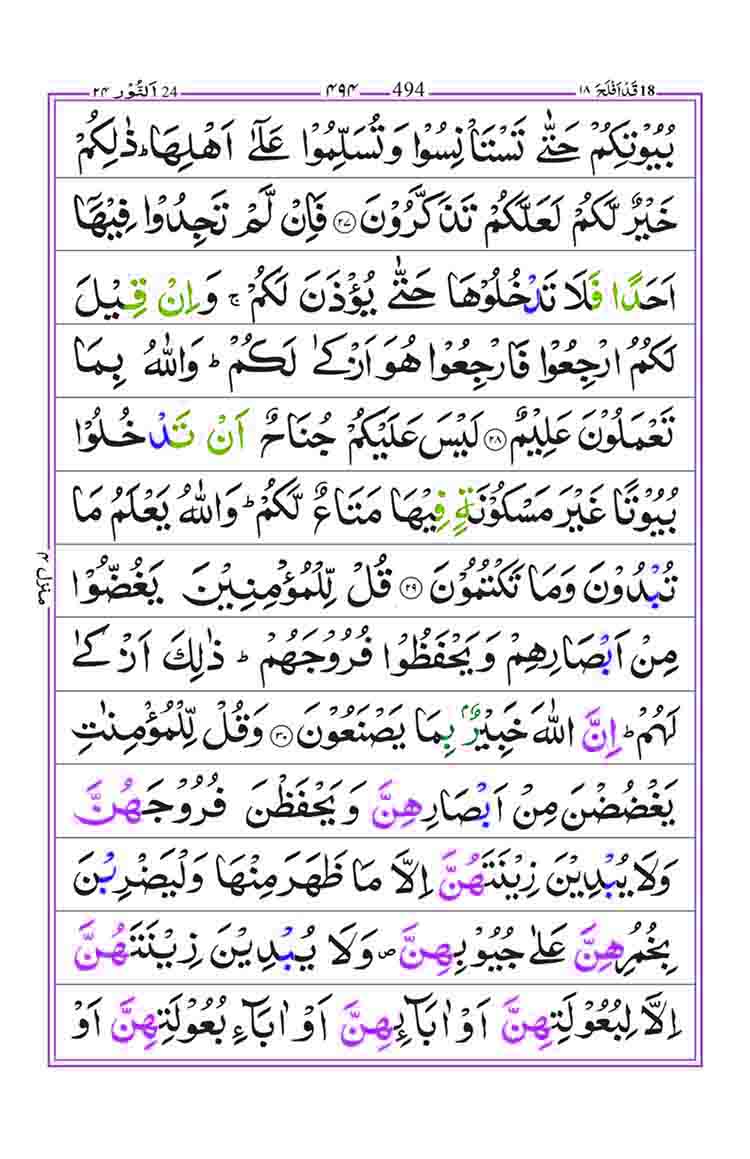 24 اَلنُّوْر ٢٤ 494 ۴۹۴ 18 قَدْ اَفْلَحَ ١٨
بُيُوْتِكُمْ حَتّٰى تَسْتَاْنِسُوْا وَتُسَلِّمُوْا عَلٰٓى اَهْلِهَا ؕ ذٰلِكُمْ
خَيْرٌ لَّكُمْ لَعَلَّكُمْ تَذَكَّرُوْنَ ﴿۲۷﴾ فَاِنْ لَّمْ تَجِدُوْا فِيْهَاۤ
اَحَدًا فَلَا تَدْخُلُوْهَا حَتّٰى يُؤْذَنَ لَكُمْ ۚ وَاِنْ قِيْلَ
لَكُمُ ارْجِعُوْا فَارْجِعُوْا هُوَ اَزْكٰى لَكُمْ ؕ وَاللّٰهُ بِمَا
تَعْمَلُوْنَ عَلِيْمٌ ﴿۲۸﴾ لَيْسَ عَلَيْكُمْ جُنَاحٌ اَنْ تَدْخُلُوْا
بُيُوْتًا غَيْرَ مَسْكُوْنَةٍ فِيْهَا مَتَاعٌ لَّكُمْ ؕ وَاللّٰهُ يَعْلَمُ مَا
تُبْدُوْنَ وَمَا تَكْتُمُوْنَ ﴿۲۹﴾ قُلْ لِّلْمُؤْمِنِيْنَ يَغُضُّوْا
مِنْ اَبْصَارِهِمْ وَيَحْفَظُوْا فُرُوْجَهُمْ ؕ ذٰلِكَ اَزْكٰى
لَهُمْ ؕ اِنَّ اللّٰهَ خَبِيْرٌۢ بِمَا يَصْنَعُوْنَ ﴿۳۰﴾ وَقُلْ لِّلْمُؤْمِنٰتِ
يَغْضُضْنَ مِنْ اَبْصَارِهِنَّ وَيَحْفَظْنَ فُرُوْجَهُنَّ
وَلَا يُبْدِيْنَ زِيْنَتَهُنَّ اِلَّا مَا ظَهَرَ مِنْهَا وَلْيَضْرِبْنَ
بِخُمُرِهِنَّ عَلٰى جُيُوْبِهِنَّ ۪ وَلَا يُبْدِيْنَ زِيْنَتَهُنَّ
اِلَّا لِبُعُوْلَتِهِنَّ اَوْ اٰبَآئِهِنَّ اَوْ اٰبَآءِ بُعُوْلَتِهِنَّ اَوْ
منزل ۴